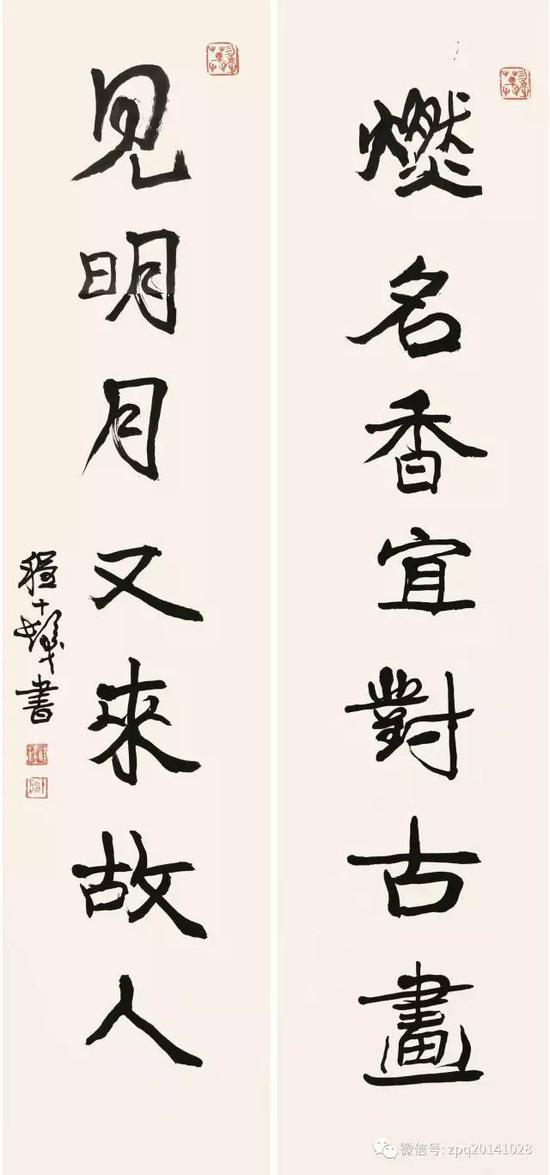 燃名香宜對古畫
見明月又來故人
程十髮書
微信号: zpq20141028